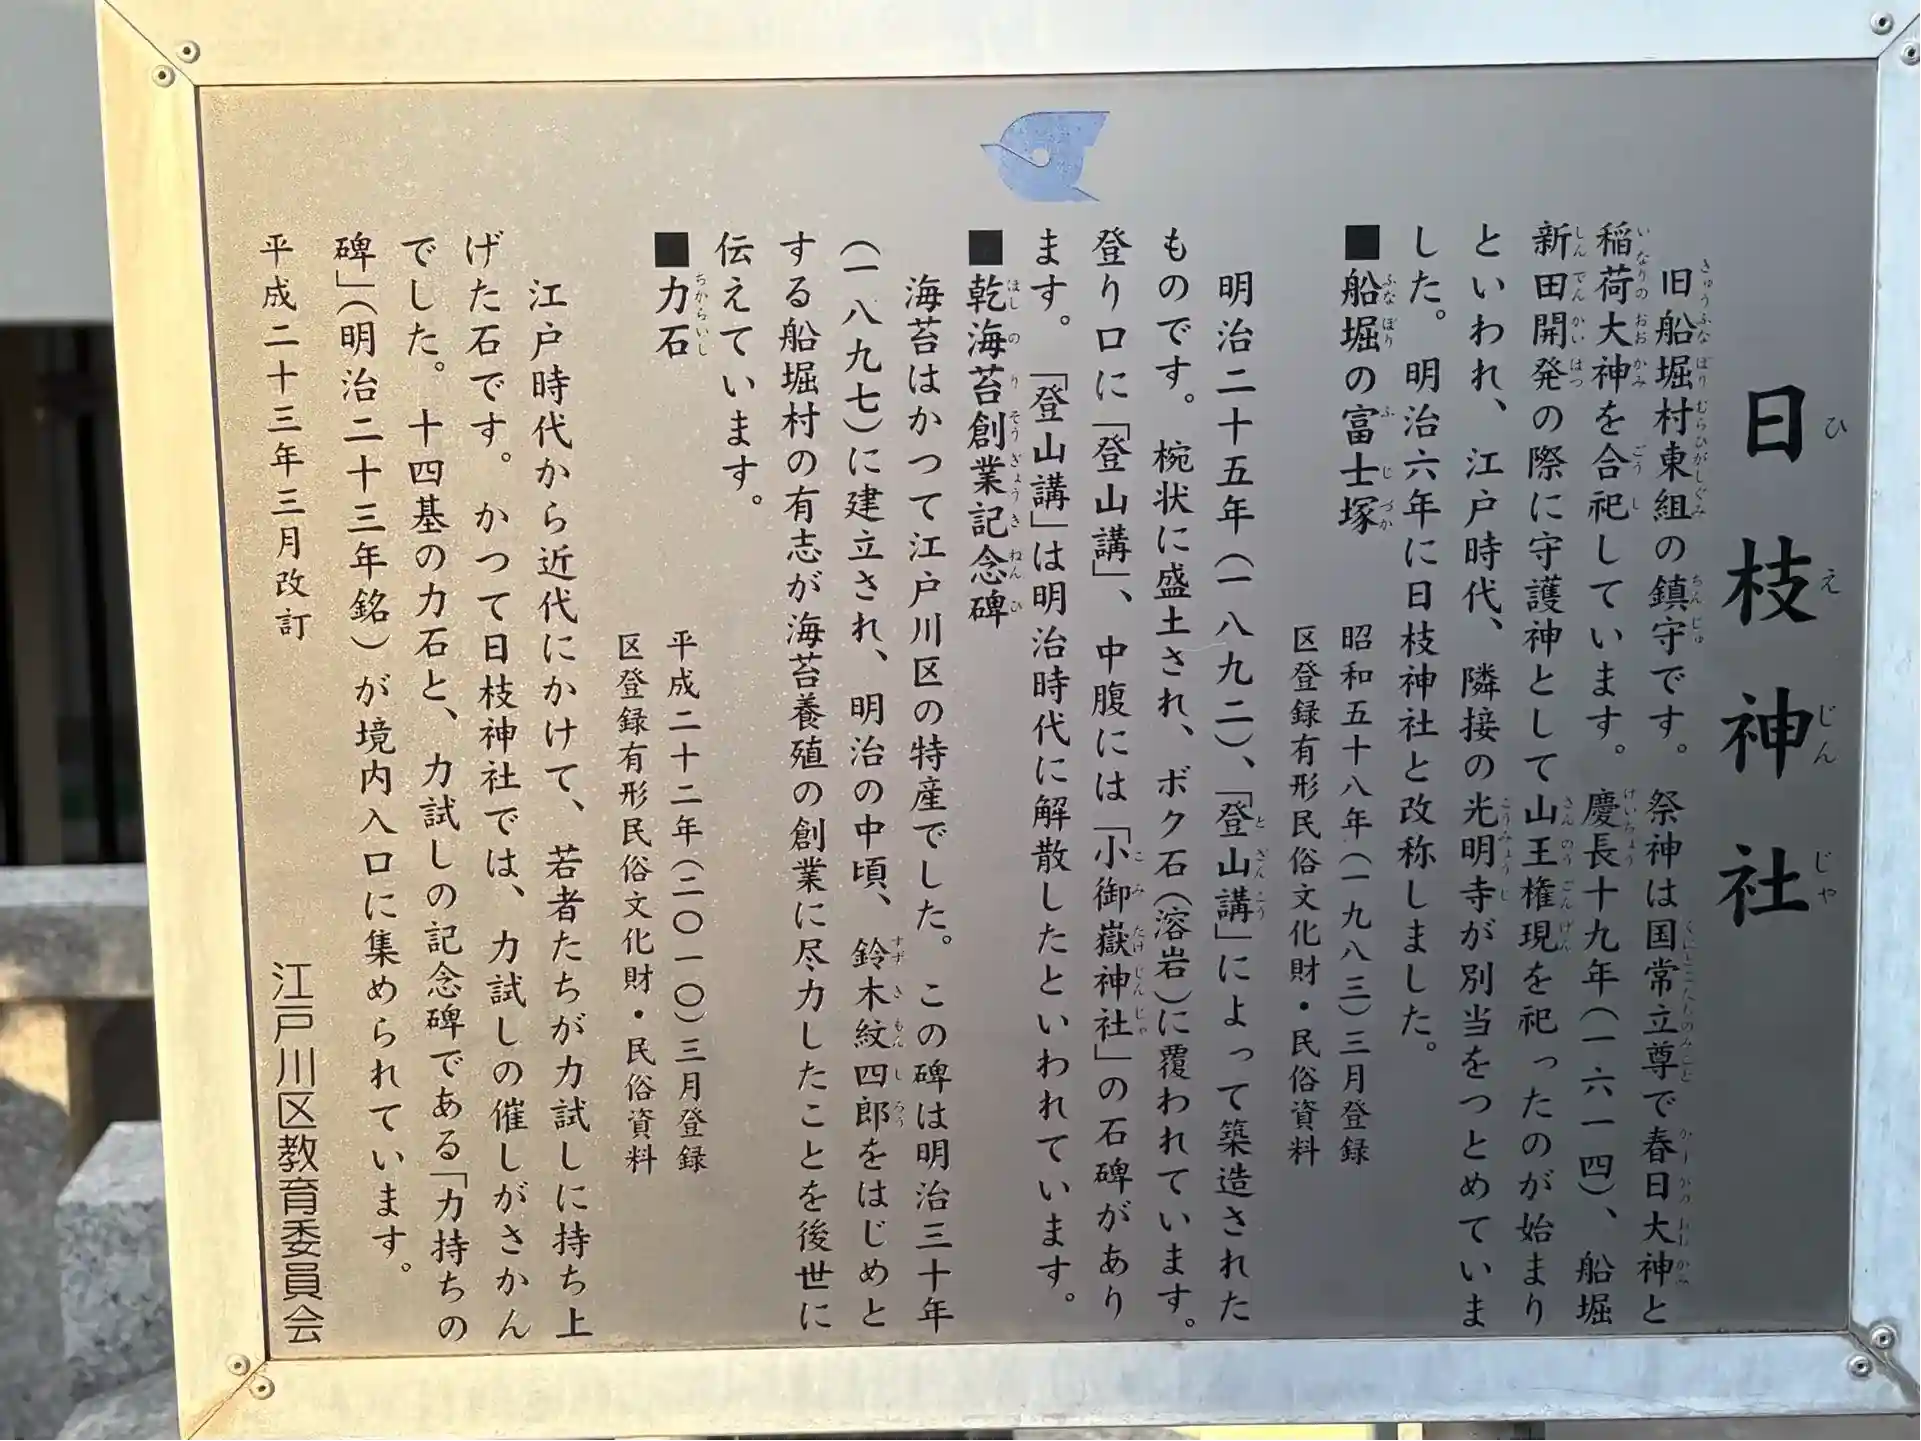 日枝神社
ひえじんじゃ
旧船堀村東組の鎮守です。祭神は国常立尊で春日大神と
稲荷大神を合祀しています。慶長十九年(一六一四)、船堀
新田開発の際に守護神として山王権現を祀ったのが始まり
といわれ、江戸時代、隣接の光明寺が別当をつとめていま
した。明治六年に日枝神社と改称しました。
■船堀の富士塚
昭和五十八年(一九八三)三月登録
区登録有形民俗文化財・民俗資料
明治二十五年(一八九二)、「登山講」によって築造された
ものです。椀状に盛土され、ボク石(溶岩)に覆われています。
登り口に「登山講」、中腹には「小御嶽神社」の石碑があり
ます。「登山講」は明治時代に解散したといわれています。
■乾海苔創業記念碑
海苔はかつて江戸川区の特産でした。この碑は明治三十年
(一八九七)に建立され、明治の中頃、鈴木紋四郎をはじめと
する船堀村の有志が海苔養殖の創業に尽力したことを後世に
伝えています。
■力石
平成二十二年(二〇一〇)三月登録
区登録有形民俗文化財・民俗資料
江戸時代から近代にかけて、若者たちが力試しに持ち上
げた石です。かつて日枝神社では、力試しの催しがさかん
でした。十四基の力石と、力試しの記念碑である「力持ちの
碑」(明治二十三年銘)が境内入口に集められています。
平成二十三年三月改訂
江戸川区教育委員会